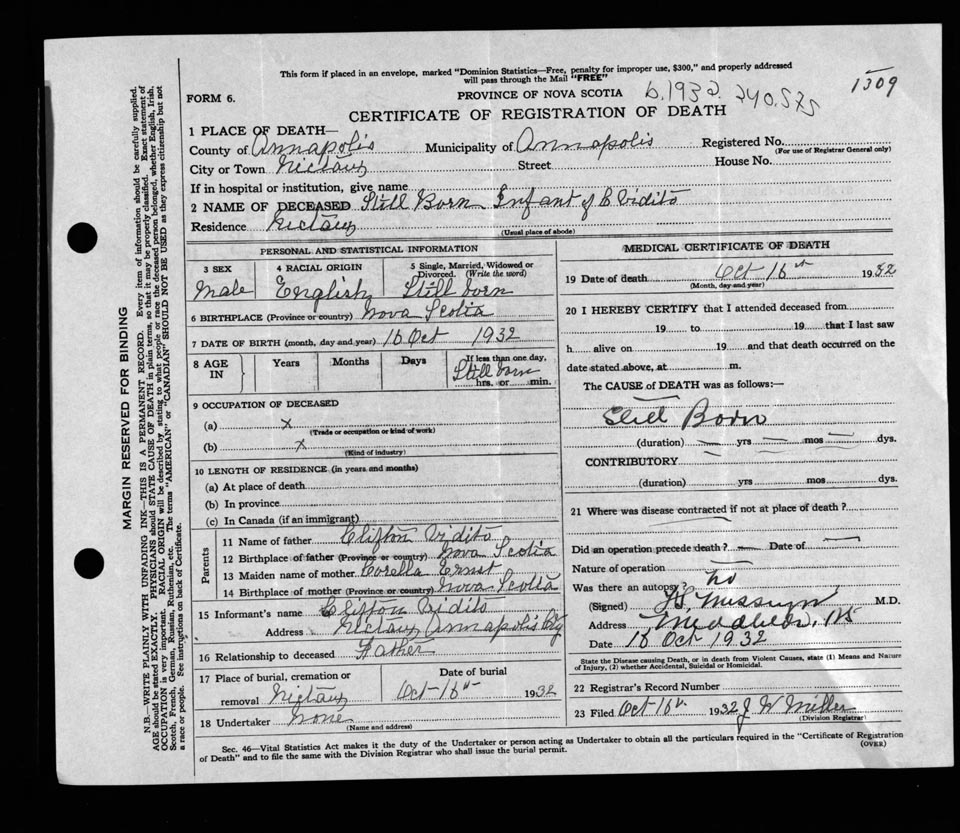 This form if placed in an envelope, marked "Dominion Statistics—Free, penalty for improper use, $300," and properly addressed
will pass through the Mail "FREE"
1309
FORM 6.
PROVINCE OF NOVA SCOTIA
b.1932. 240.575
CERTIFICATE OF REGISTRATION OF DEATH
1 PLACE OF DEATH—
County of Annapolis Municipality of Annapolis Registered No.
(For use of Registrar General only)
City or Town Nictaux Street House No.
If in hospital or institution, give name
2 NAME OF DECEASED Still Born Infant of C Vidito
Residence Nictaux
(Usual place of abode)
PERSONAL AND STATISTICAL INFORMATION
3 SEX 4 RACIAL ORIGIN 5 Single, Married, Widowed or Divorced. (Write the word)
Male English Still born
6 BIRTHPLACE (Province or country) Nova Scotia
7 DATE OF BIRTH (month, day and year) 16 Oct 1932
8 AGE IN Years Months Days If less than one day,
Still born
hrs. or min.
9 OCCUPATION OF DECEASED
(a) x
(Trade or occupation or kind of work)
(b) x
(Kind of industry)
10 LENGTH OF RESIDENCE (in years and months)
(a) At place of death
(b) In province
(c) In Canada (if an immigrant)
Parents
11 Name of father Clifton Vidito
12 Birthplace of father (Province or country) Nova Scotia
13 Maiden name of mother Corella Ernst
14 Birthplace of mother (Province or country) Nova Scotia
15 Informant's name Clifton Vidito
Address Nictaux Annapolis Co
16 Relationship to deceased Father
17 Place of burial, cremation or Date of burial
removal Nictaux Oct 16th 1932
18 Undertaker None
(Name and address)
MEDICAL CERTIFICATE OF DEATH
19 Date of death Oct 16th 1932
(Month, day and year)
20 I HEREBY CERTIFY that I attended deceased from
19 to 19 that I last saw
h alive on 19 and that death occurred on the
date stated above, at m.
The CAUSE of DEATH was as follows:—
Still Born
(duration) — yrs — mos — dys.
CONTRIBUTORY
(duration) yrs mos dys.
21 Where was disease contracted if not at place of death?
Did an operation precede death? — Date of —
Nature of operation —
Was there an autopsy? no
(Signed) M.D.
Address Middleton, NS
Date 16 Oct 1932
State the Disease causing Death, or in death from Violent Causes, state (1) Means and Nature
of Injury, (2) whether Accidental, Suicidal or Homicidal.
22 Registrar's Record Number
23 Filed Oct 16th 1932 J W Miller
(Division Registrar)
Sec. 46—Vital Statistics Act makes it the duty of the Undertaker or person acting as Undertaker to obtain all the particulars required in the "Certificate of Registration
of Death" and to file the same with the Division Registrar who shall issue the burial permit.
(OVER)
MARGIN RESERVED FOR BINDING
N.B.—WRITE PLAINLY WITH UNFADING INK—THIS IS A PERMANENT RECORD. Every item of information should be carefully supplied.
AGE should be stated EXACTLY. PHYSICIANS should STATE CAUSE OF DEATH in plain terms, so that it may be properly classified. Exact statement of
OCCUPATION is very important. RACIAL ORIGIN will be described by stating to what people or race the deceased person belonged, whether English, Irish,
Scotch, French, German, Russian, Ruthenian, etc. The terms "AMERICAN" or "CANADIAN" SHOULD NOT BE USED as they express citizenship but not
a race or people. See instructions on back of Certificate.